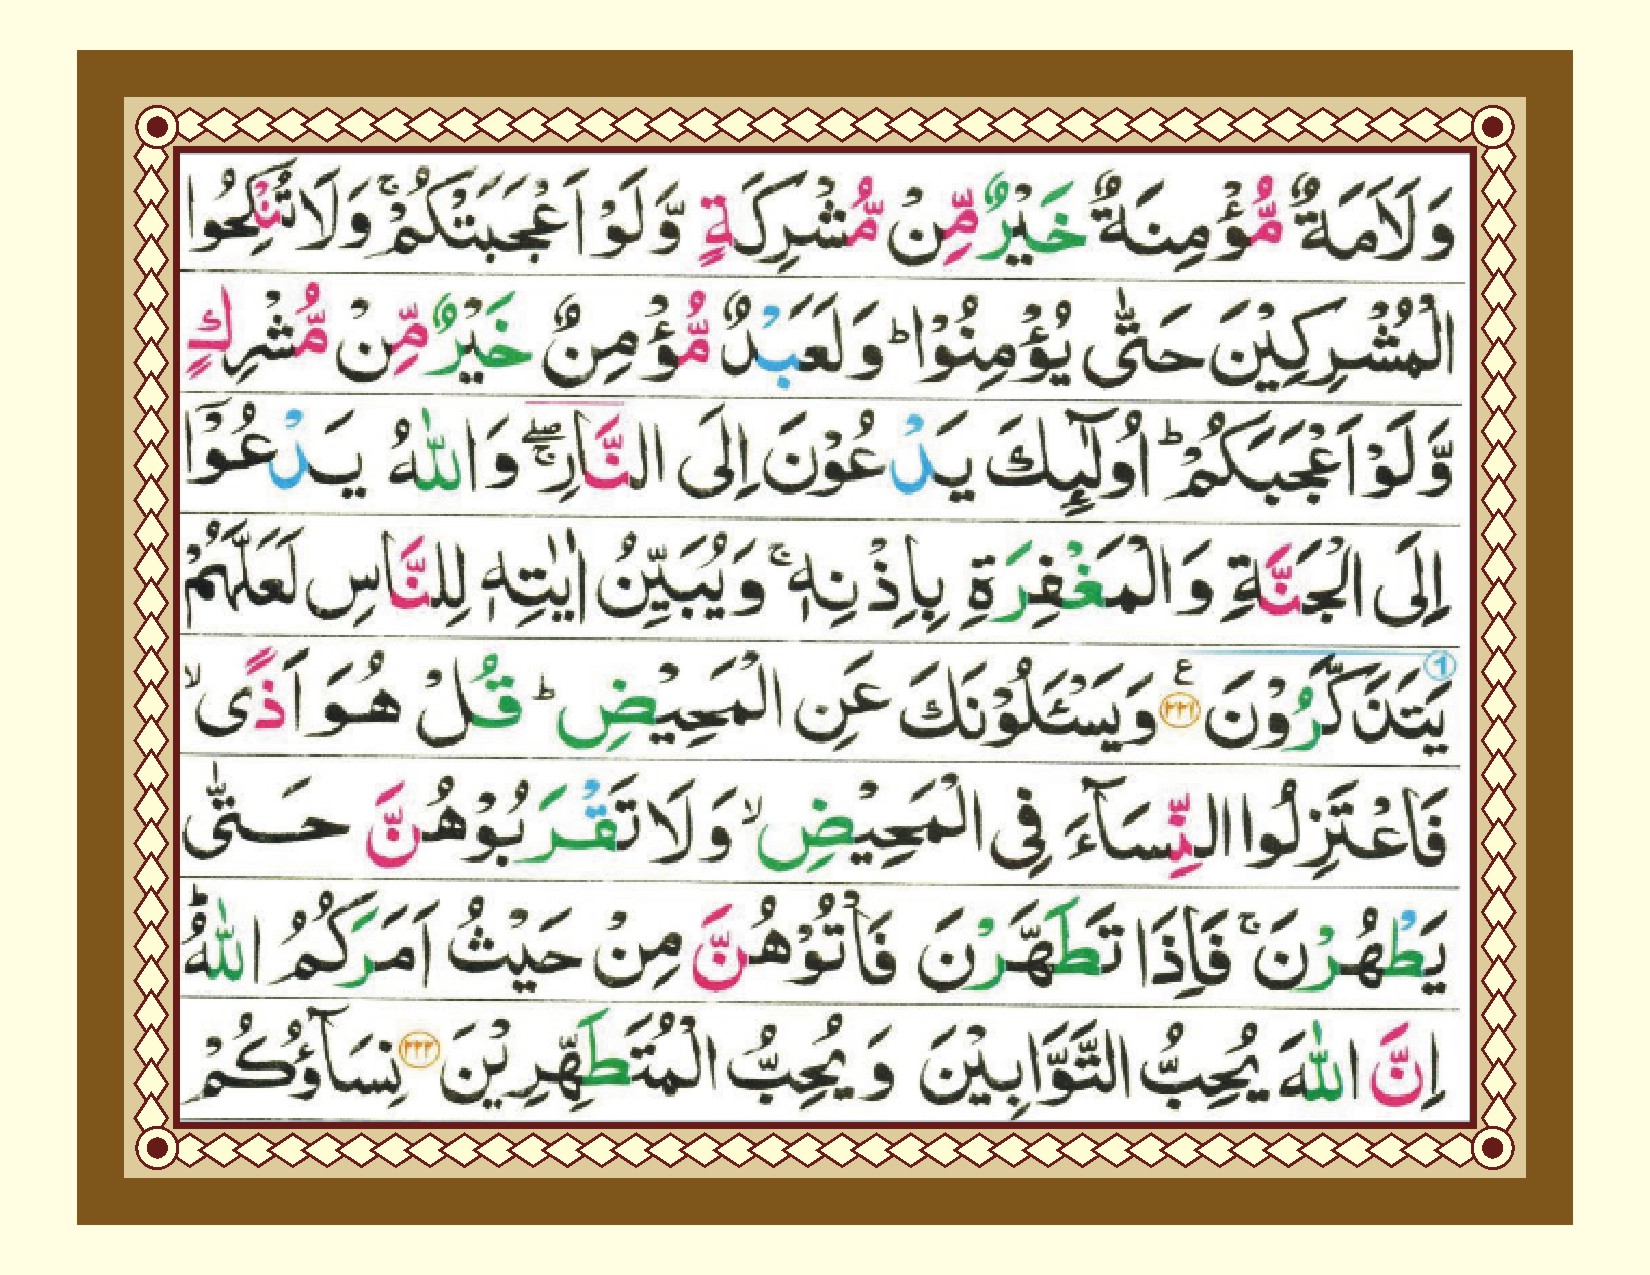 وَلَاَمَةٌ مُّؤْمِنَةٌ خَيْرٌ مِّنْ مُّشْرِكَةٍ وَّلَوْ اَعْجَبَتْكُمْ ۚ وَلَا تُنْكِحُوا
الْمُشْرِكِيْنَ حَتّٰى يُؤْمِنُوْا ؕ وَلَعَبْدٌ مُّؤْمِنٌ خَيْرٌ مِّنْ مُّشْرِكٍ
وَّلَوْ اَعْجَبَكُمْ ؕ اُولٰٓئِكَ يَدْعُوْنَ اِلَى النَّارِ ۖۚ وَاللّٰهُ يَدْعُوْٓا
اِلَى الْجَنَّةِ وَالْمَغْفِرَةِ بِاِذْنِهٖ ۚ وَيُبَيِّنُ اٰيٰتِهٖ لِلنَّاسِ لَعَلَّهُمْ
يَتَذَكَّرُوْنَ ع ۲۲۱ وَيَسْـَٔلُوْنَكَ عَنِ الْمَحِيْضِ ؕ قُلْ هُوَ اَذًى ۙ
فَاعْتَزِلُوا النِّسَآءَ فِى الْمَحِيْضِ ۙ وَلَا تَقْرَبُوْهُنَّ حَتّٰى
يَطْهُرْنَ ۚ فَاِذَا تَطَهَّرْنَ فَاْتُوْهُنَّ مِنْ حَيْثُ اَمَرَكُمُ اللّٰهُ ؕ
اِنَّ اللّٰهَ يُحِبُّ التَّوَّابِيْنَ وَيُحِبُّ الْمُتَطَهِّرِيْنَ ۲۲۲ نِسَآؤُكُمْ